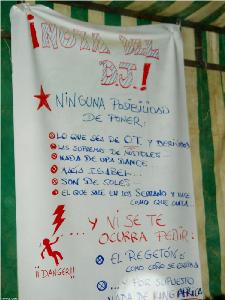 ¡NOTA DEL
DJ.!
NINGUNA POSIBILIDAD
DE PONER:
LO QUE SEA DE O.T. Y DERIVADOS
LAS SUPREMAS DE MOSTOLES...
NADA DE UPA DANCE
NAIS ISABEL...
SON DE SOLES...
EL QUE SALE EN LOS SERRANO Y HACE
COMO QUE CANTA...
... Y NI SE TE
OCURRA PEDIR:
EL REGETÓN
COMO COÑO SE ESCRIBA
Y POR SUPUESTO
NADA DE KING AFRICA
¡¡DANGER!!